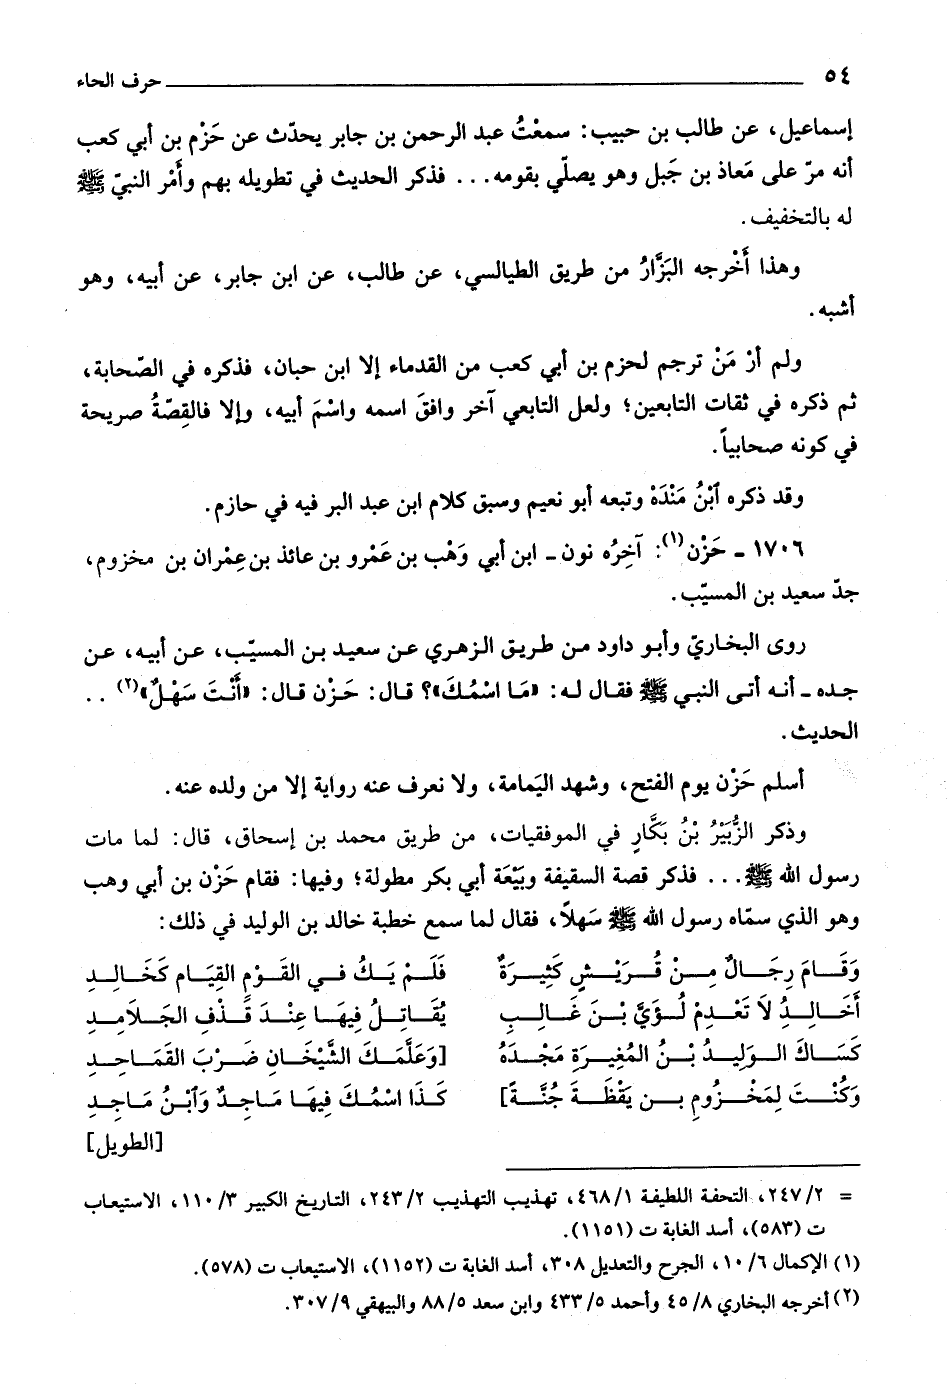 ٥٤ حرف الحاء
إسماعيل، عن طالب بن حبيب: سمعْتُ عبد الرحمن بن جابر يحدّث عن حَزْم بن أبي كعب
أنه مرّ على مَعاذ بن جَبل وهو يصلّي بقومه... فذكر الحديث في تطويله بهم وأَمْر النبيّ ﷺ
له بالتخفيف.
وهذا أَخْرجه البَزَّارُ من طريق الطيالسي، عن طالب، عن ابن جابر، عن أبيه، وهو
أشبه.
ولم أرْ مَنْ ترجم لحزم بن أبي كعب من القدماء إلا ابن حبان، فذكره في الصّحابة،
ثم ذكره في ثقات التابعين؛ ولعل التابعي آخر وافقَ اسمه واسْمَ أبيه، وإلا فالقِصّةُ صريحة
في كونه صحابياً.
وقد ذكره ٱبْنُ مَنْدَهْ وتبعه أبو نعيم وسبق كلام ابن عبد البر فيه في حازم.
١٧٠٦ ـ حَزْن(١): آخِرُه نون ـ ابن أبي وَهْب بن عَمْرو بن عائذ بن عِمْران بن مخزوم،
جدّ سعيد بن المسيّب.
روى البخاريّ وأبو داود من طريق الزهري عن سعيد بن المسيّب، عن أبيه، عن
جده ـ أنه أتى النبي ﷺ فقال له: «مَا اسْمُكَ»؟ قال: حَزْن قال: «أَنْتَ سَهْلٌ»(٢) ..
الحديث.
أسلم حَزْن يوم الفتح، وشهد اليَمامة، ولا نعرف عنه رواية إلا من ولده عنه.
وذكر الزُّبَيْرُ بْنُ بَكَّارِ في الموفقيات، من طريق محمد بن إسحاق، قال: لما مات
رسول الله ﷺ... فذكر قصة السقيفة وبَيْعَة أبي بكر مطولة؛ وفيها: فقام حَزْن بن أبي وهب
وهو الذي سمّاه رسول الله ﷺ سَهلاً، فقال لما سمع خطبة خالد بن الوليد في ذلك:
وَقَامَ رِجَالٌ مِنْ قُرَيْشٍ كَثِيرَةٌ فَلَمْ يَكُ فِي القَوْمِ القِيَامِ كَخَالِدِ
أَخَالِدُ لاَ تَعْدِمْ لُؤَيَّ بْنَ غَالِبِ يُقَاتِلُ فِيهَا عِنْدَ قَذْفِ الجَلاَمِدِ
كَسَاكَ الوَلِيدُ بْنُ المُغِيرَةِ مَجْدَهُ [وَعَلَّمَكَ الشَّيْخَانِ ضَرْبَ القَمَاحِدِ
وَكُنْتَ لِمَخْزُومِ بن يَقْظَةَ جُنَّةً] كَذَا اسْمُكَ فِيهَا مَاجِدٌ وَٱبْنُ مَاجِدِ
[الطويل]
= ٢٤٧/٢، التحفة اللطيفة ٤٦٨/١، تهذيب التهذيب ٢٤٣/٢، التاريخ الكبير ١١٠/٣، الاستيعاب
ت (٥٨٣)، أسد الغابة ت (١١٥١).
(١) الإكمال ١٠/٦، الجرح والتعديل ٣٠٨، أسد الغابة ت (١١٥٢)، الاستيعاب ت (٥٧٨).
(٢) أخرجه البخاري ٤٥/٨ وأحمد ٤٣٣/٥ وابن سعد ٨٨/٥ والبيهقي ٣٠٧/٩.